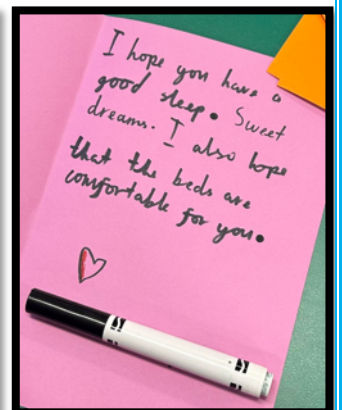 I hope you have a
good sleep. Sweet
dreams. I also hope
that the beds are
comfortable for you.